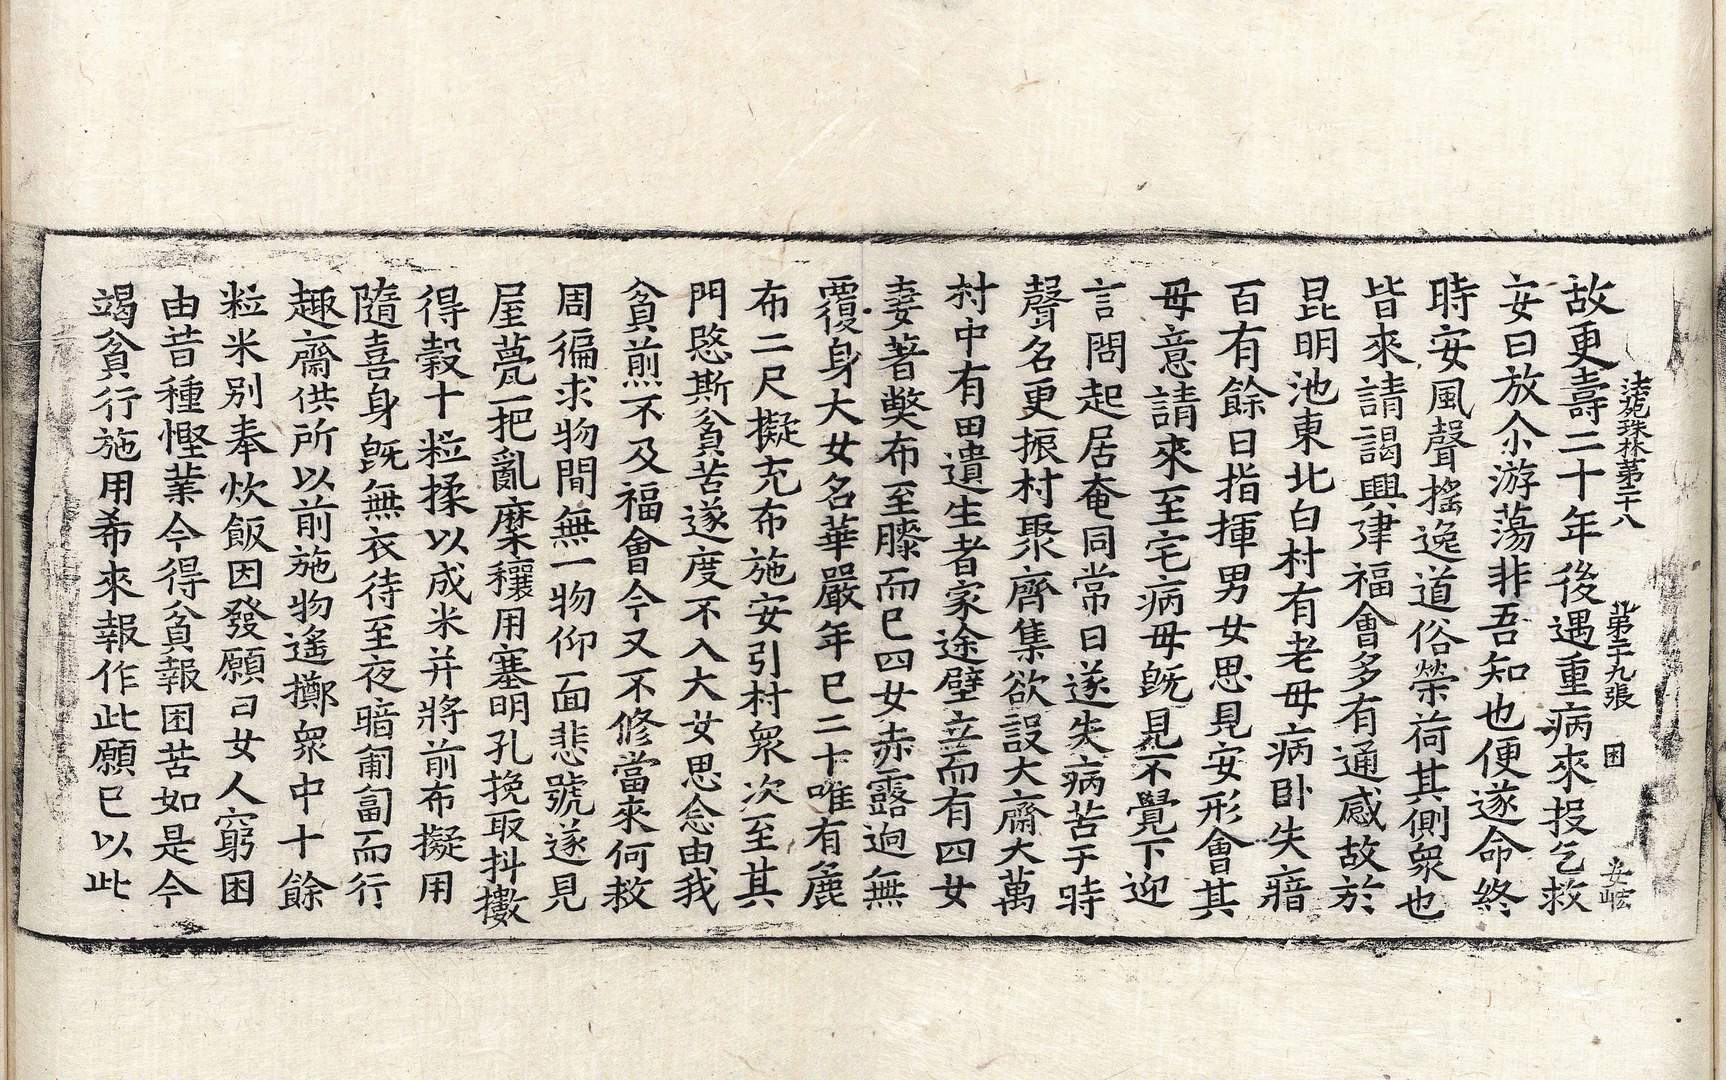 法苑珠林第二十八 第二十九張 困
故更壽二十年後遇重病來投乞救
安曰放尒游蕩非吾知也便遂命終
時安風聲搖逸道俗榮荷其側衆也
皆來請謁興建福會多有通感故於
昆明池東北白村有老母病卧失瘖
百有餘日指撝男女思見安形會其
母意請來至宅病母旣見不覺下迎
言問起居奄同常日遂失病苦于時
聲名更振村聚齊集欲設大齋大萬
村中有田遺生者家途壁立而有四女
妻著弊布至膝而已四女赤露迥無
覆身大女名華嚴年已二十唯有麁
布二尺擬充布施安引村衆次至其
門愍斯貧苦遂度不入大女思念由我
貧煎不及福會今又不修當來何救
周徧求物閒無一物仰面悲號遂見
屋甍一把亂穈穰用塞明孔挽取抖擻
得穀十粒揉以成米并將前布擬用
隨喜身旣無衣待至夜暗匍匐而行
趣齋供所以前施物遙擲衆中十餘
粒米别奉炊飯因發願曰女人窮困
由昔種慳業今得貧報困苦如是今
竭貧行施用希來報作此願已以此